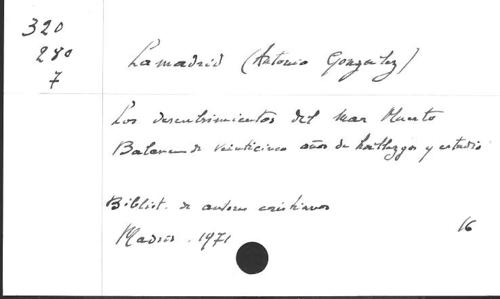 320
280
7
Lamadrid (Antonio González)
Los descubrimientos del Mar Muerto
Balance de veinticinco años de hallazgos y estudio
Bibliot. de autores cristianos
Madrid. 1971
16